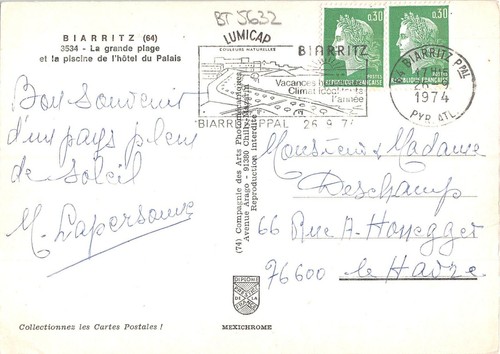 BT 5632
LUMICAP
COULEURS NATURELLES
BIARRITZ (64)
3534 - La grande plage
et la piscine de l'hôtel du Palais
Bon Souvenir
d'un pays plein
de Soleil
M. Lapersonne
BIARRITZ
Vacances
Climat idéal
l'année
BIARRITZ PPAL 26.9.74
0.30
REPUBLIQUE FRANÇAISE
0.30
REPUBLIQUE FRANÇAISE
BIARRITZ PPAL
26-9
1974
PYR. ATL.
(74) Compagnie des Arts Photomécaniques
Avenue Arago - 91380 Chilly-Mazarin
Reproduction interdite
Monsieur & Madame
Deschamp
66 Rue A-Honegger
76600 le Havre
DIPLOME
DE LA
MEXICHROME
Collectionnez les Cartes Postales !